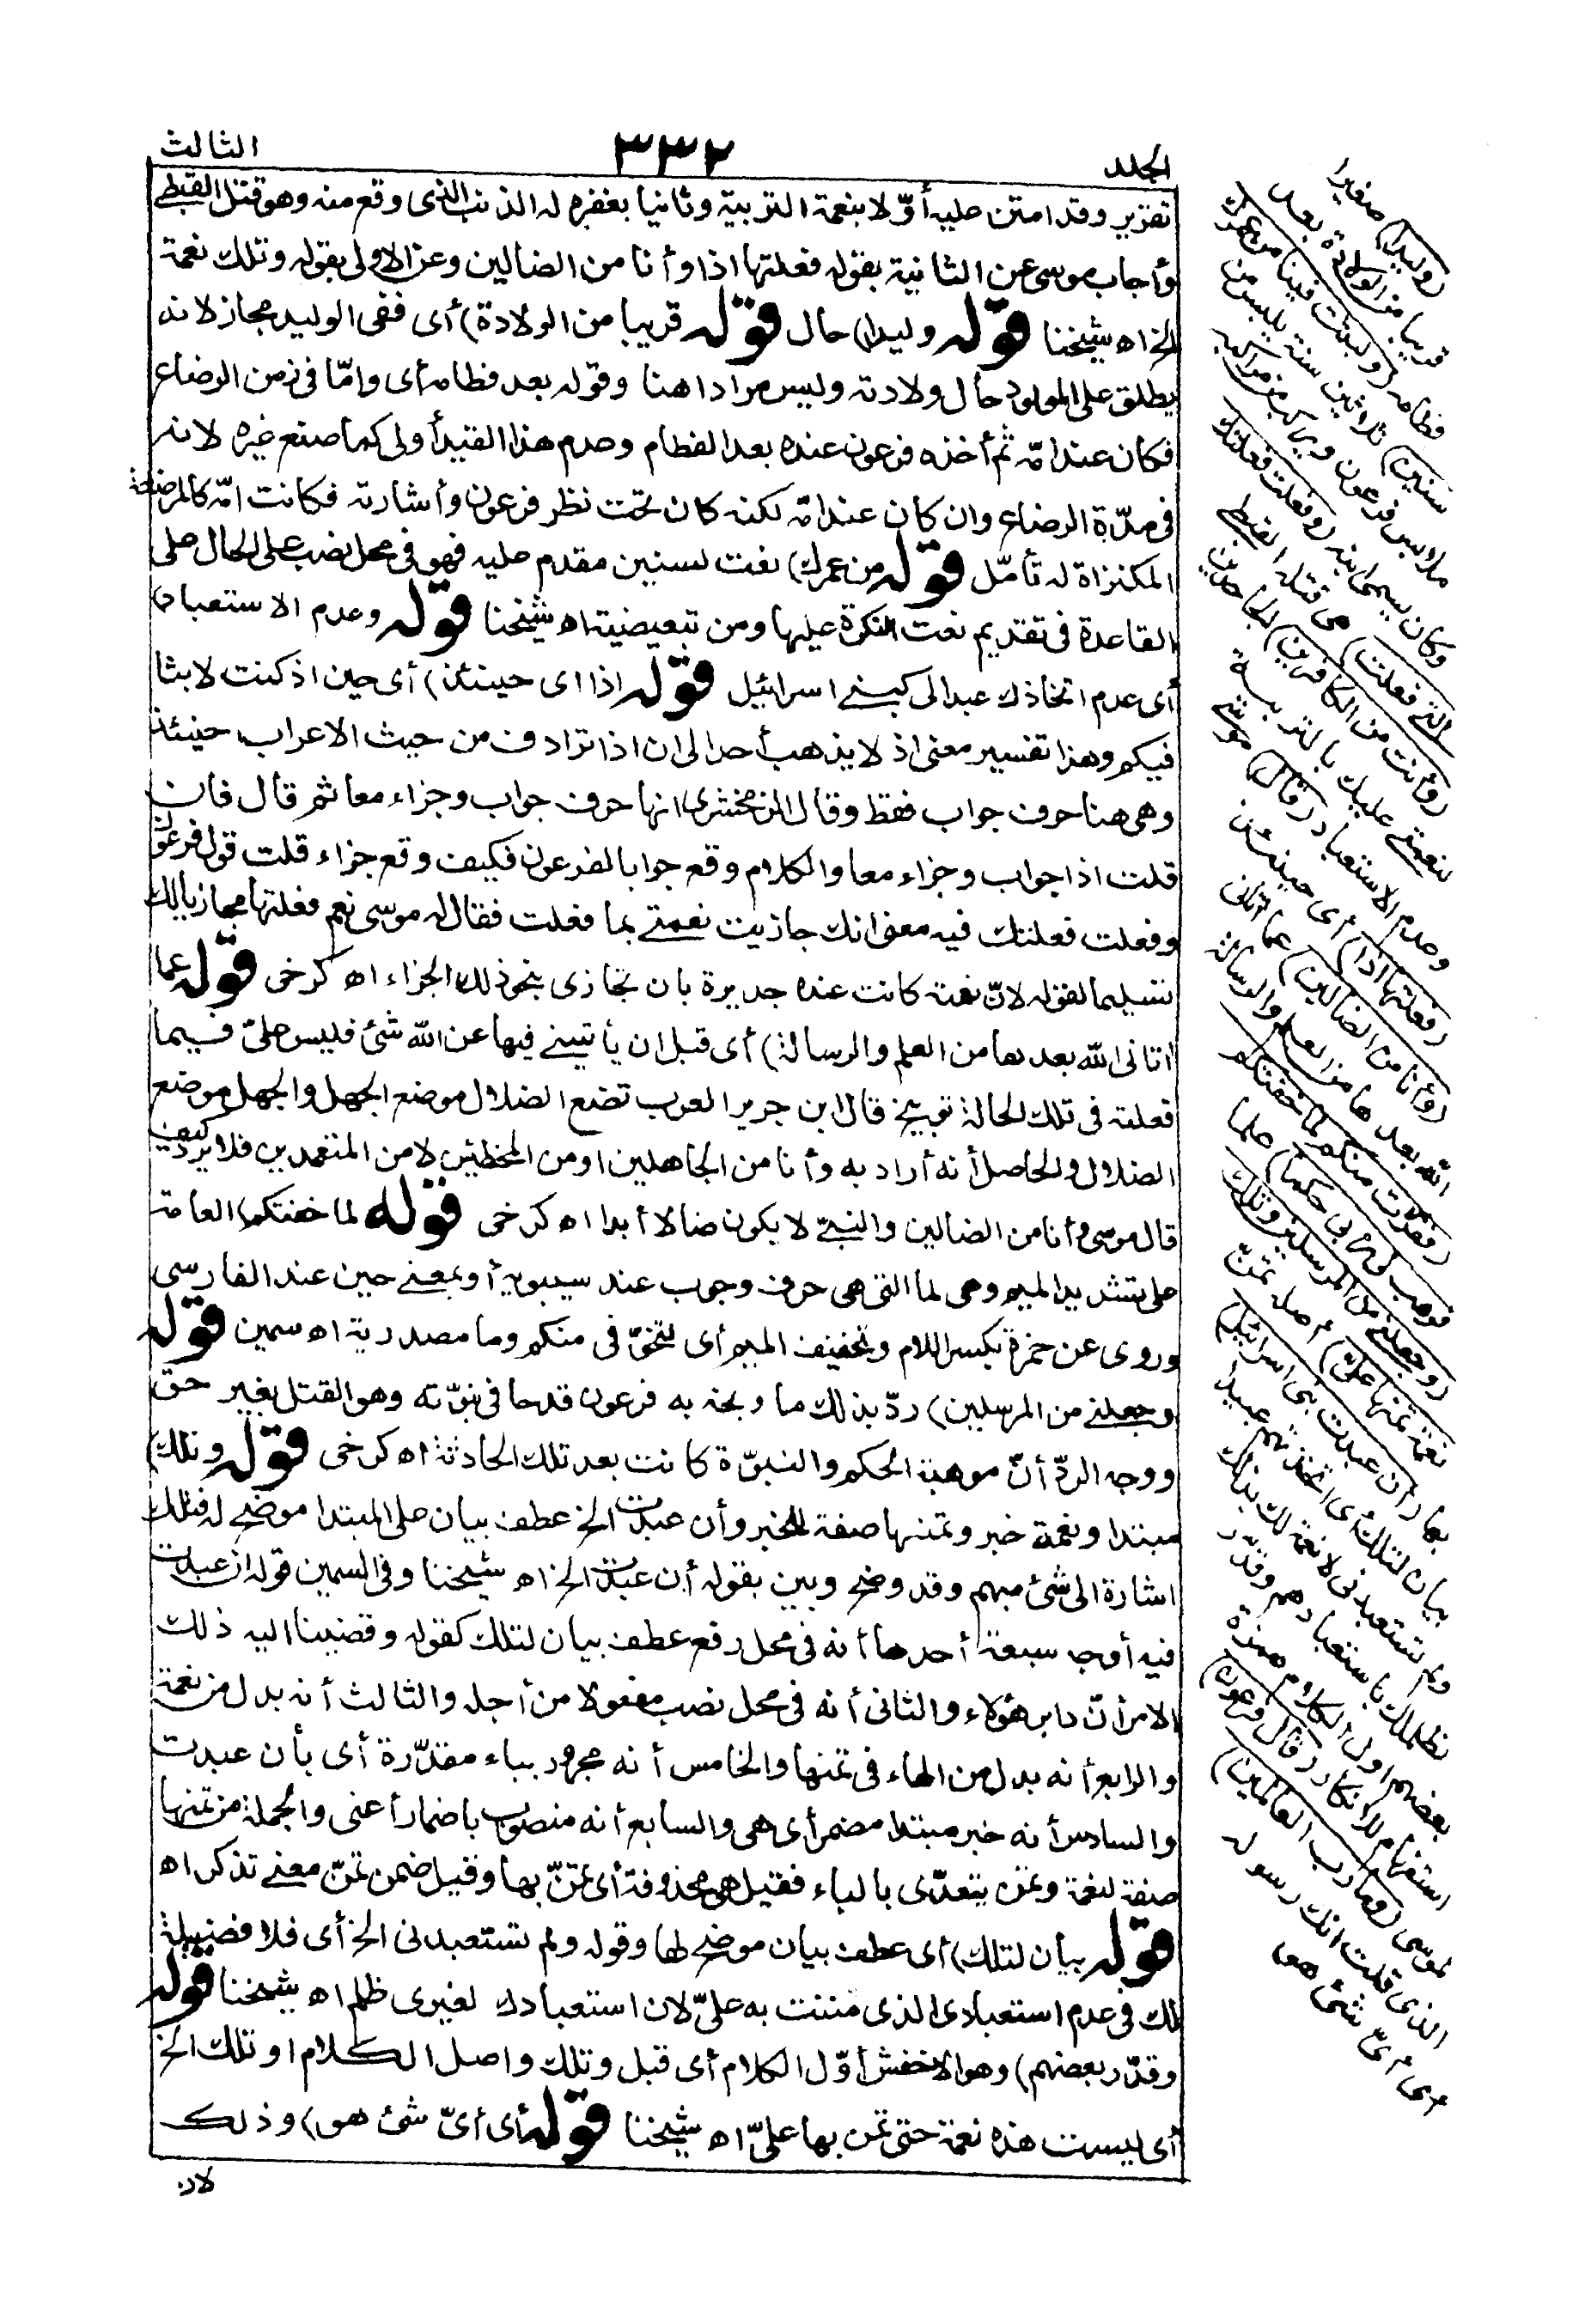 الجلد
٣٣٢
الثالث
تقرير وقد امتن عليه أوّلا بنعمة التربيّة وثانيا بغفره له الذنب الذى وقع منه وهو قتل القبطى
وأجاب موسى عن الثانية بقوله فعلتها اذا وأنا من الضالين وعن الاولى بقوله وتلك نعمة
الخ اه شيخنا قوله وليدا) حال قوله قريبا من الولادة) أى ففى الوليد مجاز لانه
يطلق على المولود حال ولادته وليس مرادا هنا وقوله بعد فطامه أى وامّا فى زمن الرضاع
فكان عند امّه ثم أخذه فرعون عنده بعد الفطام وعدم هذا القيد أولى كما صنع غيره لانه
فى مدّة الرضاع وان كان عند امّه لكنه كان تحت نظر فرعون وأشارته فكانت امّه كالمرضعة
المكتراة له تأمّل قوله من عمرك) نعت لسنين مقدم عليه فهو فى محل نصب على الحال على
القاعدة فى تقديم نعت النكرة عليها ومن تبعيضية اه شيخنا قوله وعدم الاستعباد)
أى عدم اتخاذك عبدا لى كبنى اسرائيل قوله اذا اى حينئذ) أى حين اذ كنت لابثا
فيكم وهذا تفسير معنى اذ لا يذهب أحد الى ان اذا ترادف من حيث الاعراب حينئذ
وهى هنا حرف جواب فقط وقال الزمخشرى انها حرف جواب وجزاء معا ثم قال فان
قلت اذا جواب وجزاء معا والكلام وقع جوابا لفرعون فكيف وقع جزاء قلت قول فرعون
وفعلت فعلتك فيه معنى انك جازيت نعمتى بما فعلت فقال له موسى نعم فعلتها مجازيا لك
تسليما لقوله لانّ نعمته كانت عنده جديرة بان تجازى بنحو ذلك الجزاء اه كرخى قوله عما
اتانى الله بعدها من العلم والرسالة) أى قبل ان يأتينى فيها عن الله شئ فليس علىّ فيما
فعلته فى تلك الحالة توبيخ قال ابن جرير العرب تضع الضلال موضع الجهل والجهل موضع
الضلال والحاصل أنه أراد به وأنا من الجاهلين او من المخطئين لا من المتعمدين فلا يرد كيف
قال موسى وأنا من الضالين والنبىّ لا يكون ضالا أبدا اه كرخى قوله لما خفتكم) العامة
على تشديد الميم وهى لما التى هى حرف وجوب عند سيبويه أو بمعنى حين عند الفارسى
وروى عن حمزة بكسر اللام وتخفيف الميم أى لتخوّفى منكم وما مصدرية اه سمين قوله
وجعلنى من المرسلين) ردّ بذلك ما وبخه به فرعون قدحا فى نبوّته وهو القتل بغير حق
ووجه الردّ أنّ موهبة الحكم والنبوّة كانت بعد تلك الحادثة اه كرخى قوله وتلك)
مبتدا ونعمة خبر وتمنها صفة للخبر وأن عبدت الخ عطف بيان على المبتدا موضح له فتلك
اشارة الى شئ مبهم وقد وضح وبين بقوله أن عبدت الخ اه شيخنا وفى السمين قوله ان عبدت
فيه أوجه سبعة أحدها أنه فى محل رفع عطف بيان لتلك كقوله وقضينا اليه ذلك
الامر أنّ دابر هؤلاء والثانى أنه فى محل نصب مفعولا من أجله والثالث أنه بدل من نعمة
والرابع أنه بدل من الهاء فى تمنها والخامس أنه مجرور بباء مقدّرة أى بأن عبدت
والسادس أنه خبر مبتدا مضمر أى هى والسابع أنه منصوب باضمار أعنى والجملة من تمنها
صفة لنعمة وتمن يتعدّى بالباء فقيل هى محذوفة أى تمنّ بها وقيل ضمن تمنّ معنى تذكر اه
قوله بيان لتلك) أى عطف بيان موضح لها وقوله ولم تستعبدنى الخ أى فلا فضيلة
لك فى عدم استعبادى الذى مننت به علىّ لان استعبادك لغيرى ظلم اه شيخنا قوله
وقدّر بعضهم) وهو الاخفش أوّل الكلام أى قبل وتلك واصل الكلام او تلك الخ
أى ليست هذه نعمة حتى تمن بها علىّ اه شيخنا قوله أى أىّ شئ هو) وذلك
لان
(وليدا) صغيرا
قريبا من الولادة بعد
فطامه (ولبثت فينا من عمرك
سنين) ثلاثين سنة يلبس من
ملابس فرعون ويركب من مراكبه
وكان يسمى ابنه (وفعلت فعلتك
التى فعلت) هى قتله القبطى
(وأنت من الكافرين) الجاحدين
لنعمتى عليك بالتربية
وعدم الاستعباد (قال) موسى
(فعلتها اذا) أى حينئذ
(وأنا من الضالين) عما اتانى
الله بعدها من العلم والرسالة
(ففررت منكم لما خفتكم
فوهب لى ربى حكما) علما
(وجعلنى من المرسلين وتلك
نعمة تمنها علىّ) أصله تمنّ
بها (أن عبدت بنى اسرائيل)
بيان لتلك أى اتخذتهم عبيدا
ولم تستعبدنى لا نعمة لك بذلك
لظلمك باستعبادهم وقدّر
بعضهم اول الكلام همزة
استفهام للانكار (قال فرعون)
لموسى (وما رب العالمين)
الذى قلت انك رسوله
أى أىّ شئ هو